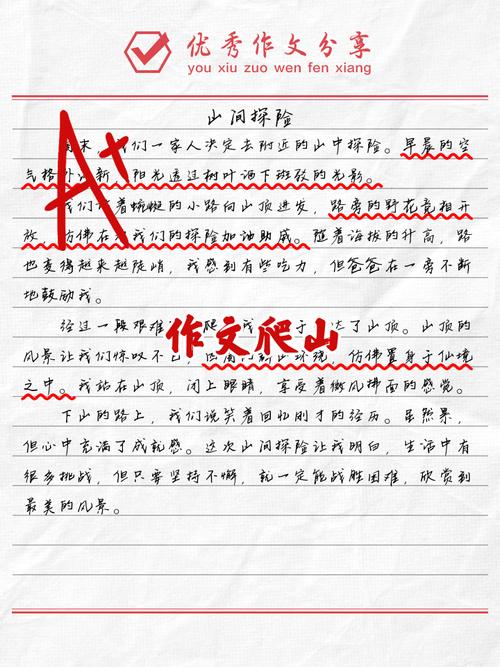 优秀作文分享
you xiu zuo wen fen xiang
山间探险
A+
末,我们一家人决定去附近的山中探险。早晨的空
气格外清新,阳光透过树叶洒下斑驳的光影。
我们沿着蜿蜒的小路向山顶进发,路旁的野花竞相开
放,仿佛在为我们的探险加油助威。随着海拔的升高,路
也变得越来越陡峭,我感到有些吃力,但爸爸在一旁不断
地鼓励我。
经过一段艰难 爬 我 于 达了山顶。山顶的
风景让我们惊叹不已, 环绕,仿佛置身于仙境
之中。我站在山顶,闭上眼睛,享受着微风拂面的感觉。
作文爬山
下山的路上,我们说笑着回忆刚才的经历。虽然累,
但心中充满了成就感。这次山间探险让我明白,生活中有
很多挑战,但只要坚持不懈,就一定能战胜困难,欣赏到
最美的风景。